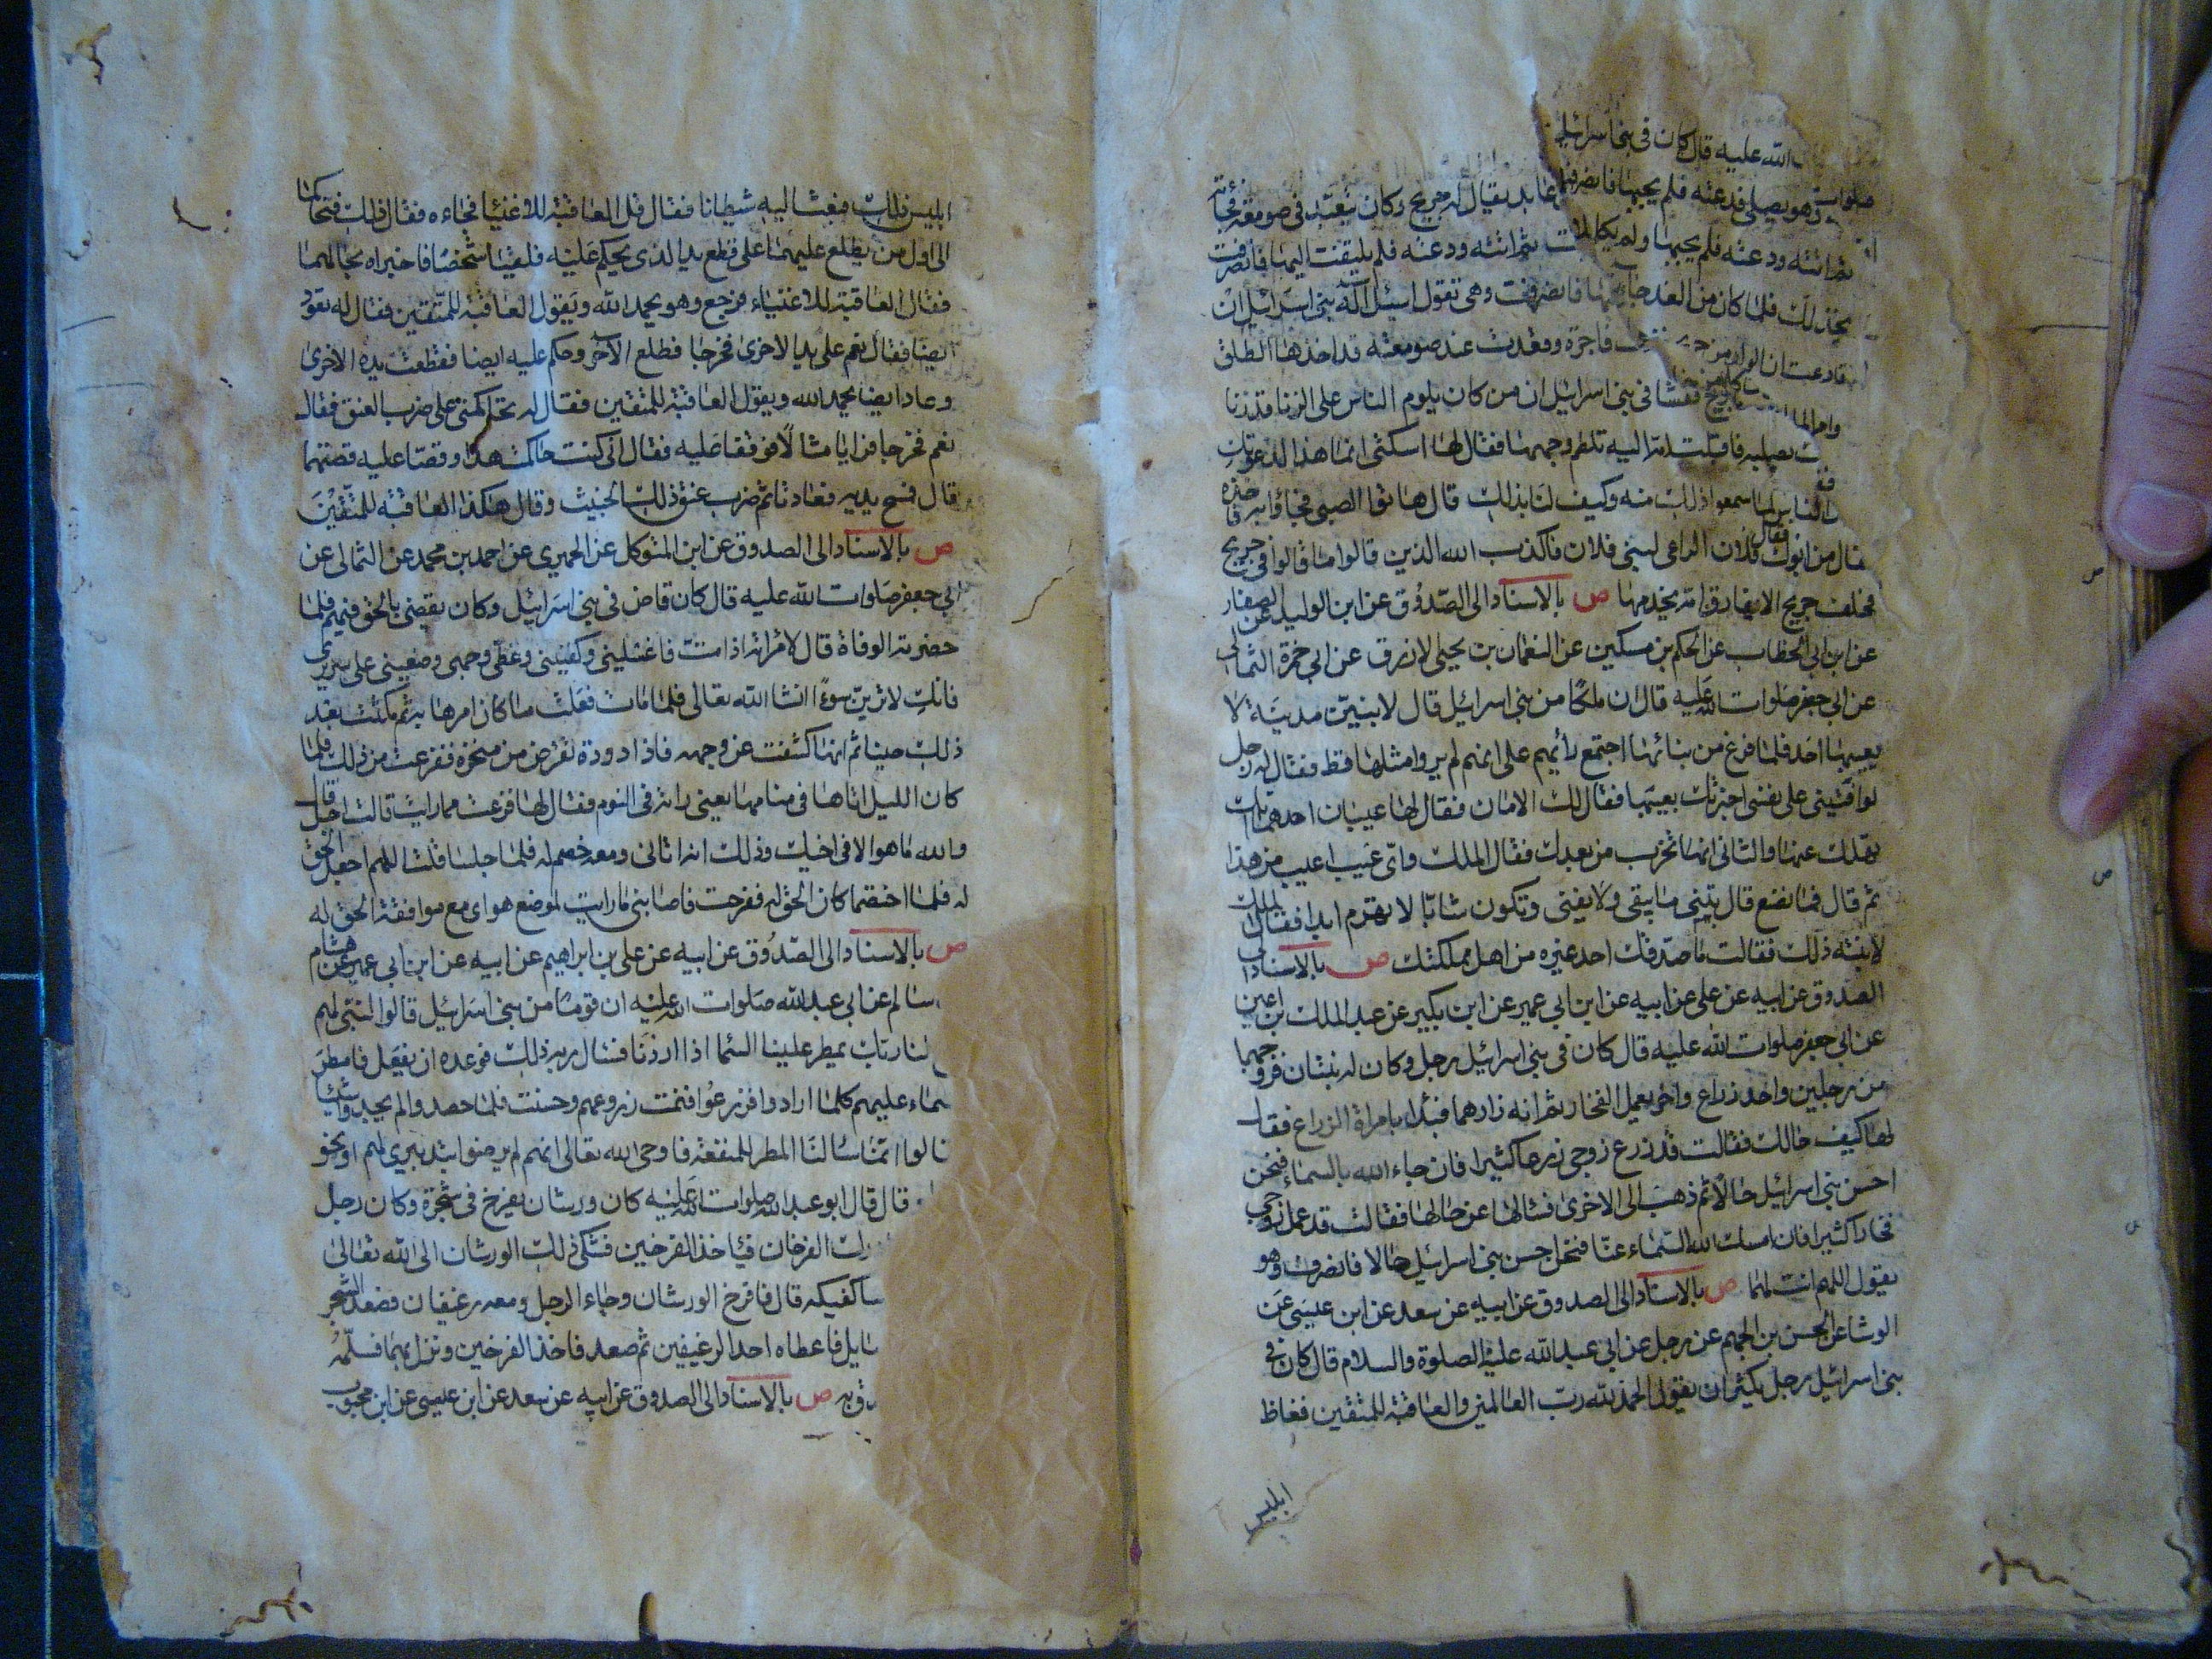 الله عليه قال كان في بني اسرائيل
عابد يقال له جريج وكان يتعبد في صومعة فجائته
وهو يصلي فدعته فلم يجبها فانصرفت
ثم اتته ودعته فلم يلتفت اليها فانصرفت
ثم اتته ودعته فلم يجبها ولم يكلمها
فانصرفت وهي تقول اسئل اله بني اسرائيل ان
يخذلك فلما كان من الغد جائت
فاجرة وقعدت عند صومعته قد اخذها الطلق
فادعت ان الولد من جريج ففشا في بني اسرائيل ان من كان يلوم الناس على الزنا قد زنا
بصلبه فاقبلت امه اليه تلطم وجهها فقال لها اسكتي انما هذا لدعوتك
فقال الناس لما سمعوا ذلك منه وكيف لنا بذلك قال هاتوا الصبي فجاؤا به فاخذه
فقال من ابوك فقال فلان الراعي لبني فلان فاكذب الله الذين قالوا ما قالوا في جريج
فحلف جريج الا يفارق امه يخدمها ص بالاسناد الى الصدوق عن ابن الوليد عن الصفار
عن ابن ابي الخطاب عن الحكم بن مسكين عن النعمان بن يحيى الازرق عن ابي حمزة الثمالي
عن ابي جعفر صلوات الله عليه قال ان ملكا من بني اسرائيل قال لابنين مدينة لا
يعيبها احد فلما فرغ من بنائها اجتمع رأيهم على انهم لم يروا مثلها قط فقال له رجل
لو امنتني على نفسي اخبرتك بعيبها فقال لك الامان فقال لها عيبان احدهما انك
تهلك عنها والثاني انها تخرب من بعدك فقال الملك واي عيب اعيب من هذا
ثم قال فما نصنع قال تبني ما يبقى ولا يفنى وتكون شابا لا تهرم ابدا فقال الملك
لابنته ذلك فقالت ما صدقك احد غيره من اهل مملكتك ص بالاسناد الى
الصدوق عن ابيه عن علي عن ابيه عن ابن ابي عمير عن ابن بكير عن عبد الملك بن اعين
عن ابي جعفر صلوات الله عليه قال كان في بني اسرائيل رجل وكان له بنتان فزوجهما
من رجلين واحد زراع واخر يعمل الفخار ثم انه زارهما فبدا بامراة الزراع فقال
لها كيف حالك فقالت قد زرع زوجي زرعا كثيرا فان جاء الله بالسماء فنحن
احسن بني اسرائيل حالا ثم ذهب الى الاخرى فسالها عن حالها فقالت قد عمل زوجي
فخارا كثيرا فان امسك الله السماء عنا فنحن احسن بني اسرائيل حالا فانصرف وهو
يقول اللهم انت لهما ص بالاسناد الى الصدوق عن ابيه عن سعد عن ابن عيسى عن
الوشا عن الحسن بن الجهم عن رجل عن ابي عبد الله عليه الصلوة والسلام قال كان في
بني اسرائيل رجل يكثر ان يقول الحمد لله رب العالمين والعاقبة للمتقين فغاظ
ابليس
ابليس ذلك فبعث اليه شيطانا فقال قل العاقبة للاغنيا فجاءه فقال ذلك فتحاكما
الى اول من يطلع عليهما على قطع يد الذي يحكم عليه فلقيا شخصا فاخبراه بحالهما
فقال العاقبة للاغنياء فرجع وهو يحمد الله ويقول العاقبة للمتقين فقال له تعود
ايضا فقال نعم على يد الاخرى فخرجا فطلع الآخر وحكم عليه ايضا فقطعت يده الاخرى
وعاد ايضا يحمد الله ويقول العاقبة للمتقين فقال له تحاكمني على ضرب العنق فقال
نعم فخرجا فرايا مثالا فوقفا عليه فقال اني كنت حاكمت هذا وقصا عليه قصتهما
قال فمسح يديه فعادتا ثم ضرب عنق ذلك الخبيث وقال هكذا العاقبة للمتقين
ص بالاسناد الى الصدوق عن ابن المتوكل عن الحميري عن احمد بن محمد عن الثمالي عن
ابي جعفر صلوات الله عليه قال كان قاض في بني اسرائيل وكان يقضي بالحق فيهم فلما
حضرته الوفاة قال لامراته اذا مت فاغسليني وكفنيني وغطي وجهي وضعيني على سريري
فانك لا ترين سوءا انشا الله تعالى فلما مات فعلت ما كان امرها به ثم مكثت بعد
ذلك حينا ثم انها كشفت عن وجهه فاذا دودة تقرض من منخره ففزعت من ذلك فلما
كان الليل اتاها في منامها يعني راته في النوم فقال لها فزعت مما رايت قالت اجل قال
والله ما هو الا في اخيك وذلك انه اتاني ومعه خصم له فلما جلسا قلت اللهم اجعل الحق
له فلما اختصما كان الحق له ففرحت فاصابني ما رايت لموضع هواي مع موافقة الحق له
ص بالاسناد الى الصدوق عن ابيه عن علي بن ابراهيم عن ابيه عن ابن ابي عمير عن هشام
بن سالم عن ابي عبد الله صلوات الله عليه ان قوما من بني اسرائيل قالوا لنبي لهم
لنا ربك يمطر علينا السما اذا اردنا فسال ربه ذلك فوعده ان يفعل فامطر
السماء عليهم كلما ارادوا فزرعوا فنمت زروعهم وحسنت فلما حصدوا لم يجدوا شيئا
قالوا انما سالنا المطر للمنفعة فاوحى الله تعالى انهم لم يرضوا بتدبيري لهم او نحو
قال قال ابو عبد الله صلوات الله عليه كان ورشان يفرخ في شجرة وكان رجل
ادرك الفرخان فياخذ الفرخين فشكى ذلك الورشان الى الله تعالى
ساكفيكه قال فافرخ الورشان وجاء الرجل ومعه رغيفان فصعد الشجر
سايل فاعطاه احد الرغيفين ثم صعد فاخذ الفرخين ونزل بهما فسلمه
ص بالاسناد الى الصدوق عن ابيه عن سعد عن ابن عيسى عن ابن محبوب